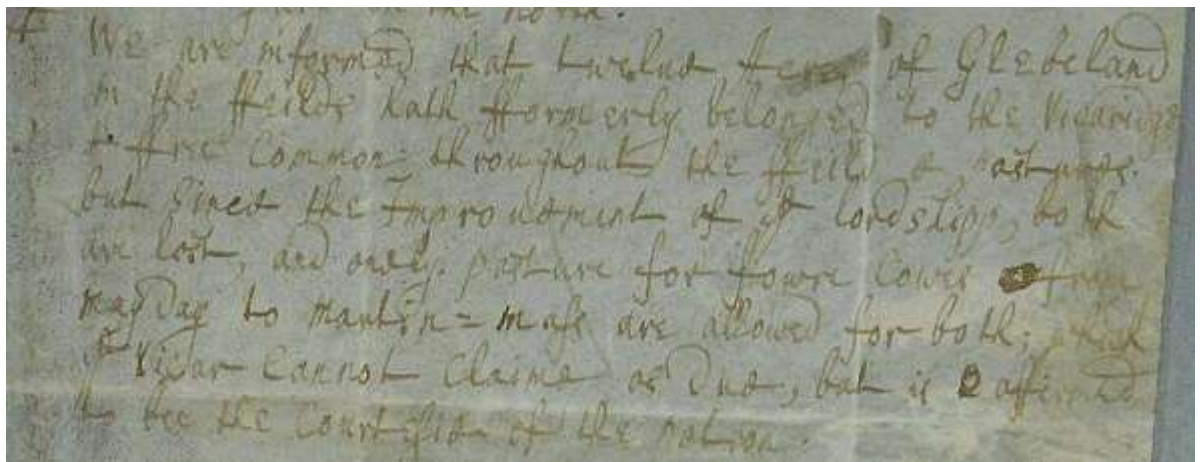 on the north.
We are informed that twelve Acres of Glebeland
in the ffeilds hath fformerly belonged to the Vicaridge
& ffree Common throughout the ffeild & pastures.
but since the Improuement of ye lordshipp, both
are lost, and onely pasture for fowre Cowes from
may Day to Martin=mass are allowed for both; which
ye Vicar Cannot Claime as due, but is affirmed
to bee the Courtisie of the patron.